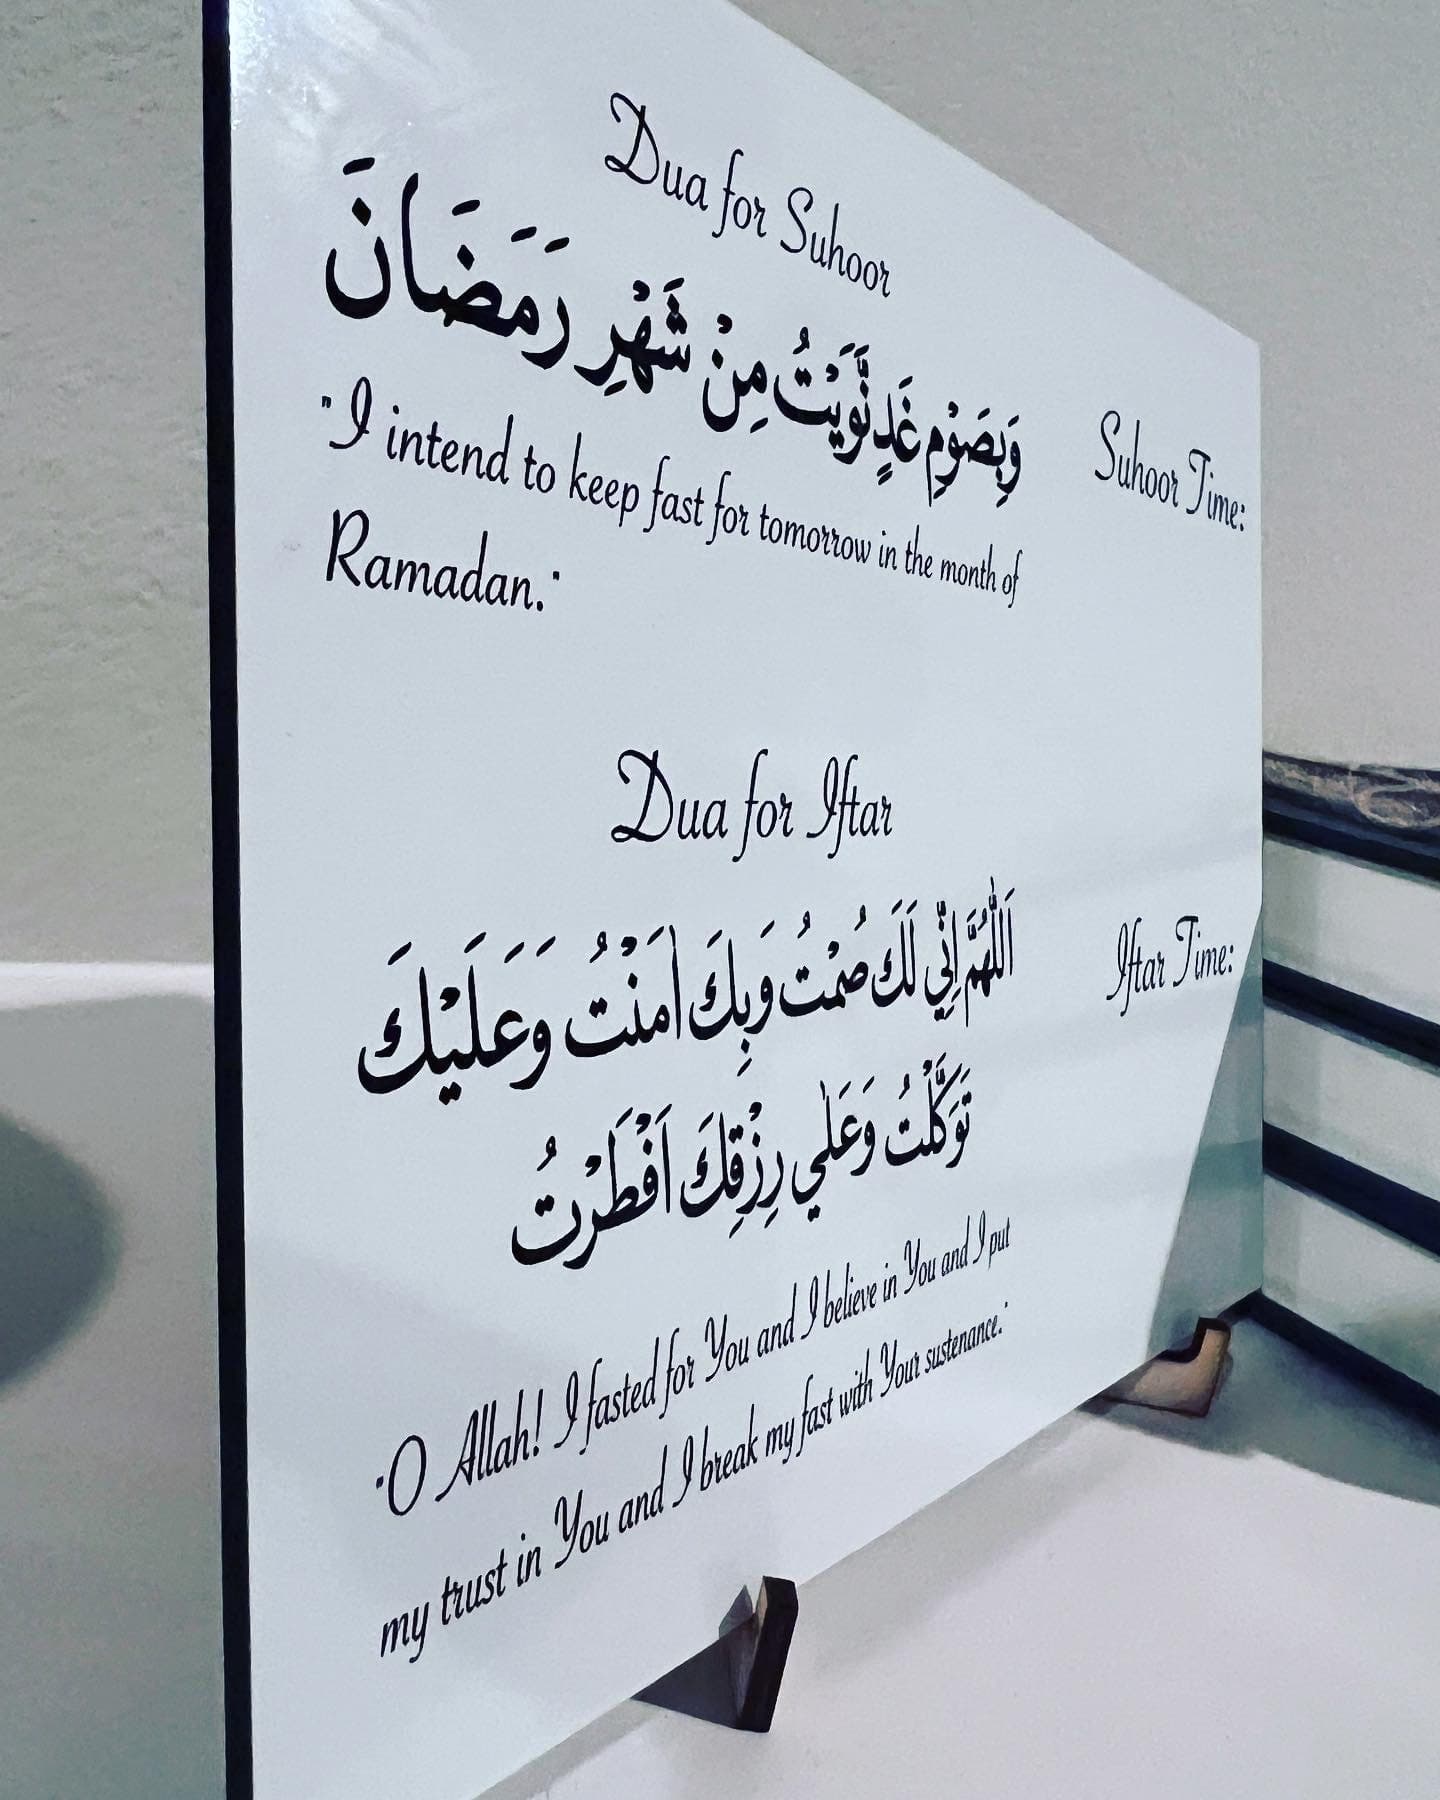 Dua for Suhoor
وَبِصَوْمِ غَدٍ نَّوَيْتُ مِنْ شَهْرِ رَمَضَانَ
"I intend to keep fast for tomorrow in the month of
Ramadan."
Suhoor Time:
Dua for Iftar
اَللّٰهُمَّ اِنِّي لَكَ صُمْتُ وَبِكَ اٰمَنْتُ وَعَلَيْكَ
تَوَكَّلْتُ وَعَلٰي رِزْقِكَ اَفْطَرْتُ
Iftar Time:
"O Allah! I fasted for You and I believe in You and I put
my trust in You and I break my fast with Your sustenance."